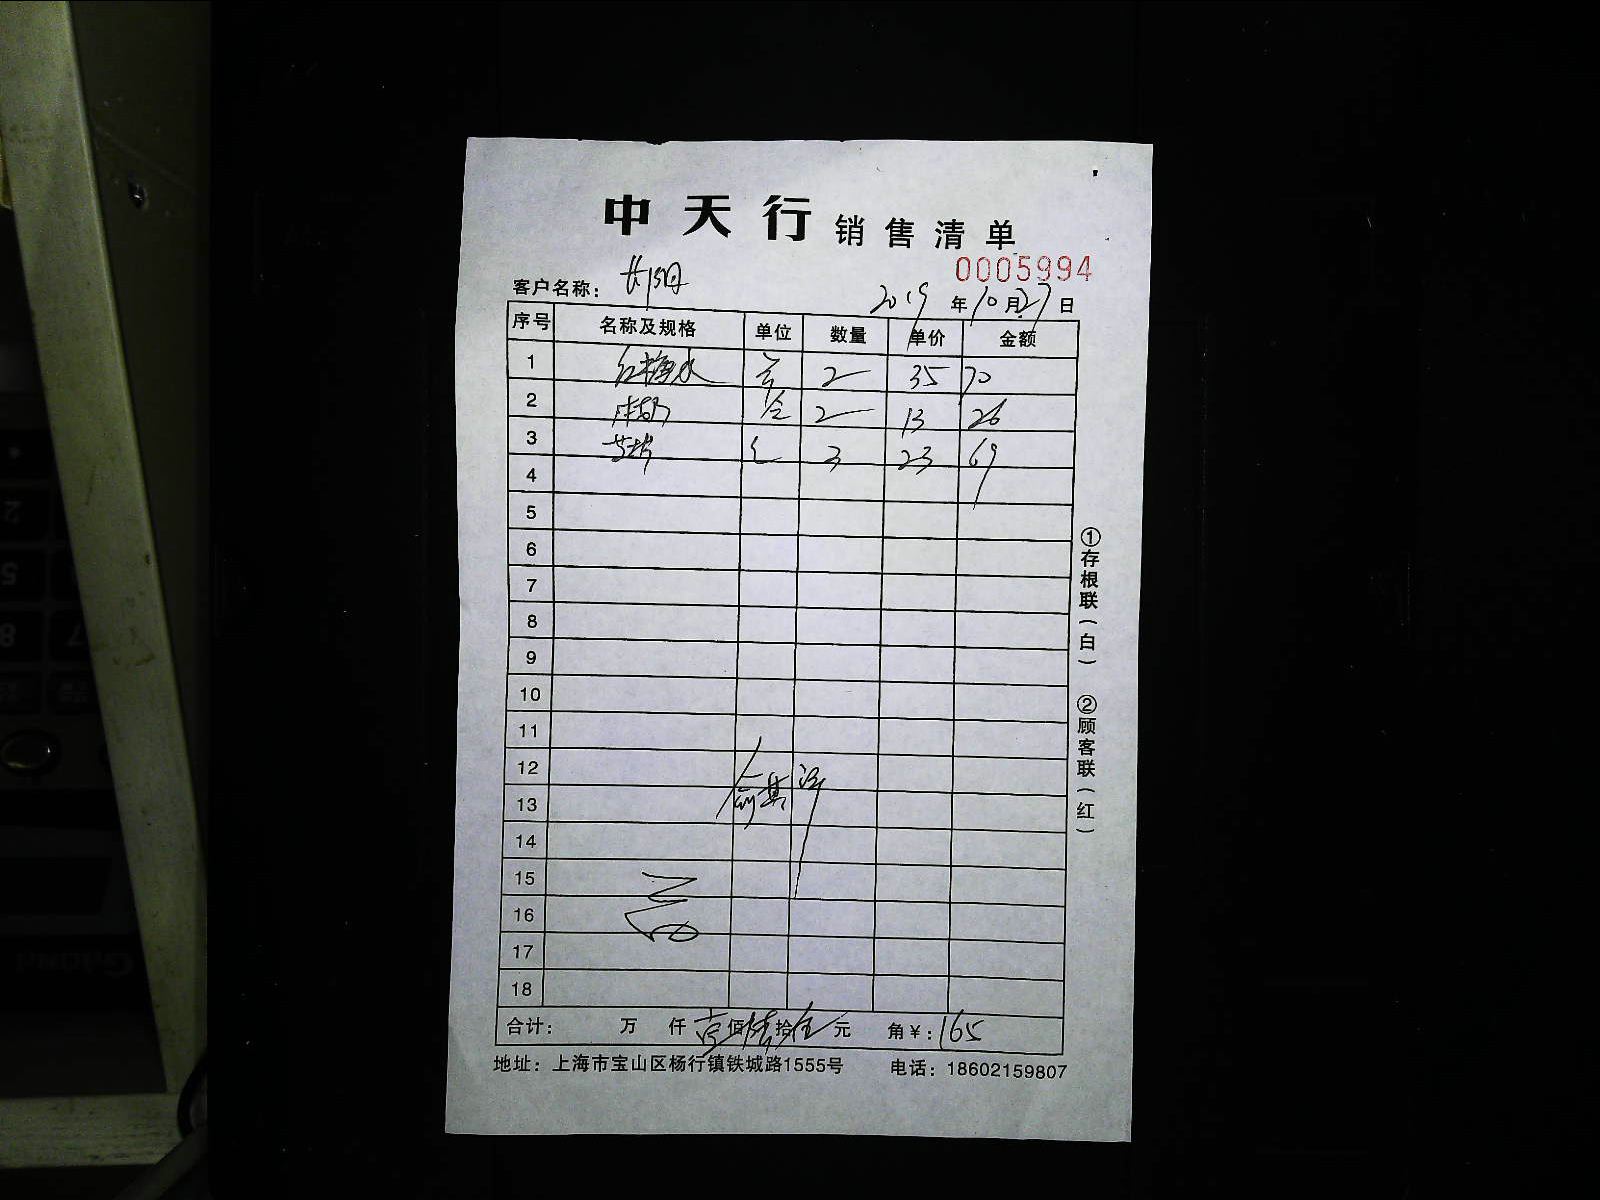 中天行 销售清单
0005994
客户名称：
2019 年 10 月 27 日
序号 名称及规格 单位 数量 单价 金额
1 2 35 70
2 2 13 26
3 3 23 69
4
5
6
7
8
9
10
11
12
13
14
15
16
17
18
合计： 万 仟 壹 佰 陆 拾 伍 元 角 ¥：165
地址：上海市宝山区杨行镇铁城路1555号 电话：18602159807
①存根联（白） ②顾客联（红）